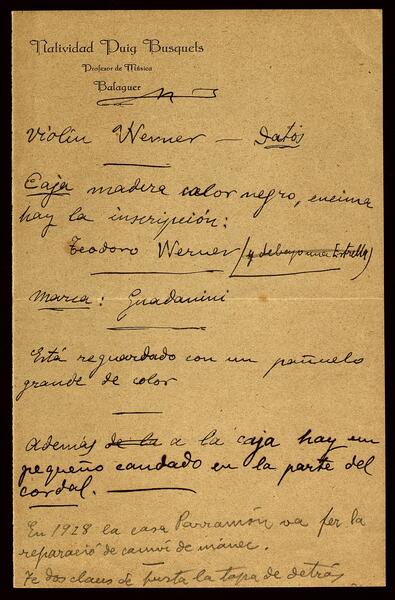 Natividad Puig Busquets
Profesor de Música
Balaguer
Violín Werner — Datos
Caja madera color negro, encima
hay la inscripción:
Teodoro Werner (y debajo una Estrella)
Marca: Guadanini
Está reguardado con un pañuelo
grande de color
Además de la a la caja hay un
pequeño candado en la parte del
cordal.
En 1928 la casa Parramón va fer la
reparació de canvi de mánec.
Te dos claus de fusta la tapa de detrás